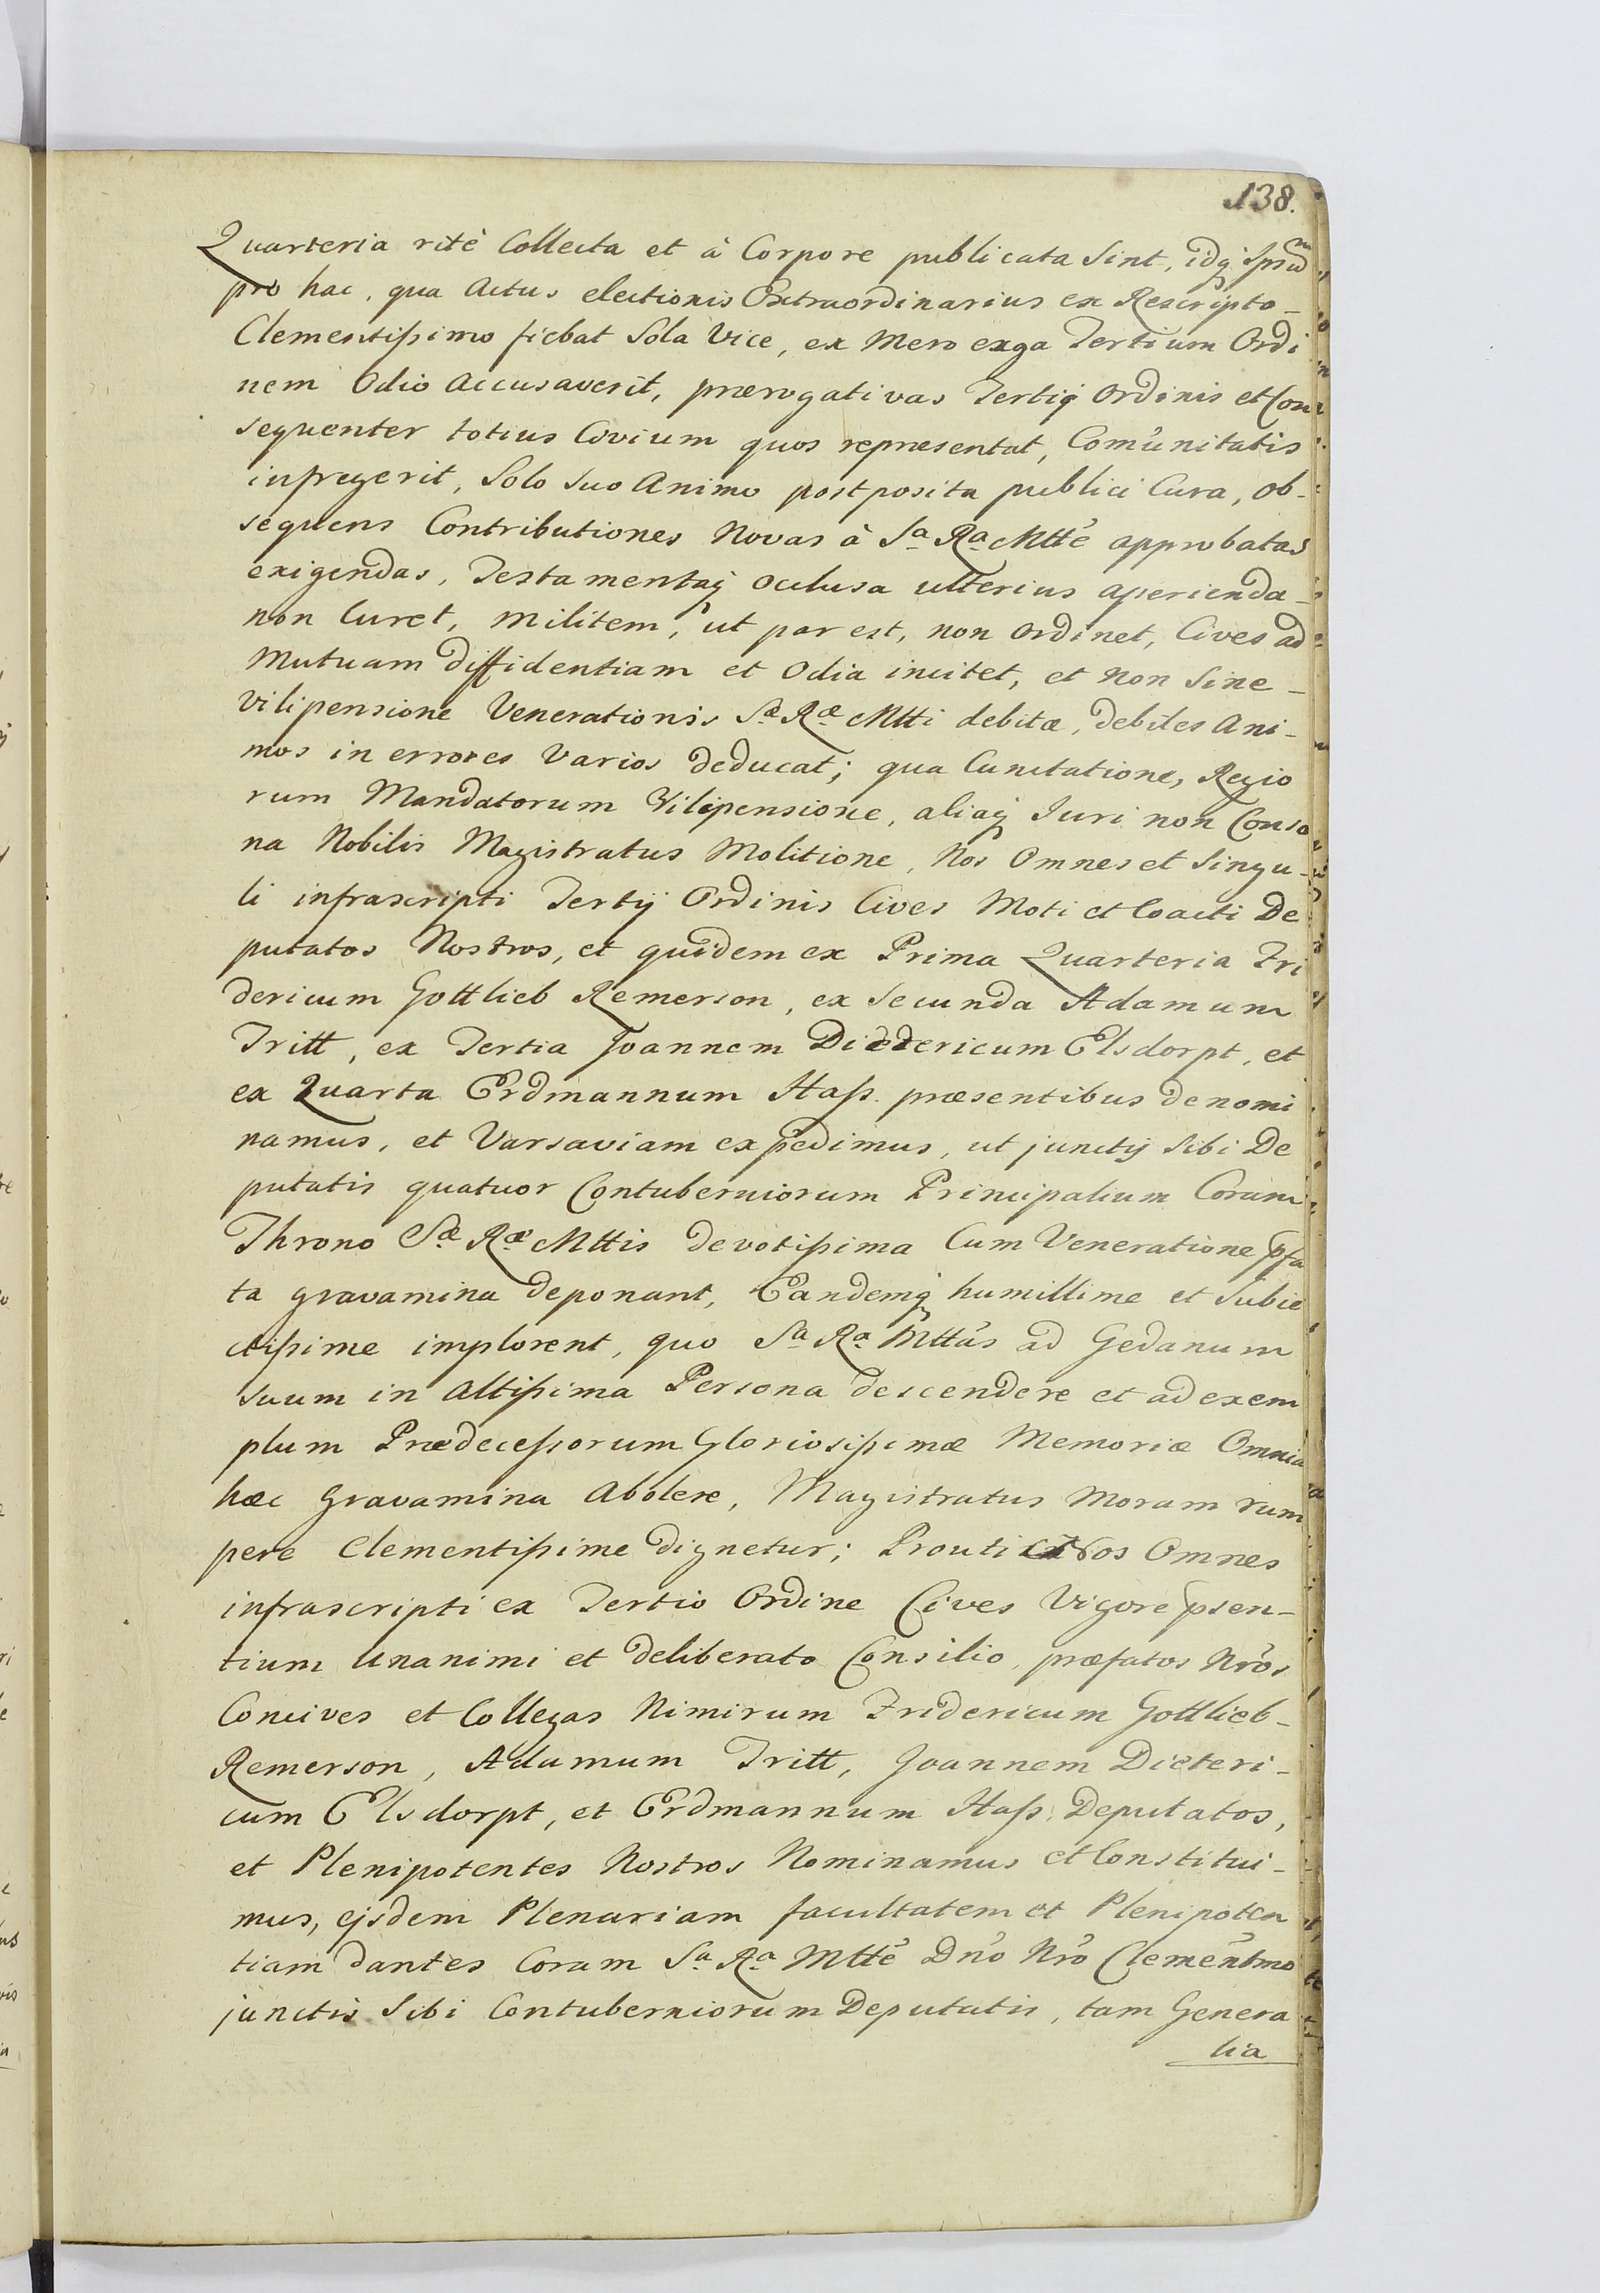 138.
Quarteria ritè Collecta et à Corpore publicata Sint, idq
pro hac, qua Actus electionis Extraordinarius ex Rescripto-
Clementißimo fiebat Sola Vice, ex Mero erga Tertium Ordi
nem Odio Accusaverit, prærogativas Tertij Ordinis et Con
sequenter totius Civium quos repræsentat, Com̃unitatis
infregerit, Solo Suo Animo postposita publici Cura, ob-
sequens Contributiones Novas à Sa Ra Mttẽ approbatas
exigendas, Testamentaq̃ occlusa ulterius aperienda-
non Curet, Militem, ut par est, non Ordinet, Cives ad
Mutuam diffidentiam et Odia incitet, et Non Sine-
Vilipensione Venerationis Sæ Ræ Mtti debitæ, debiles Ani-
mos in errores Varios deducat; qua Cunctatione, Regio
rum Mandatorum Vilipensione, aliaq̃ Juri non Conso
na Nobilis Magistratus Molitione, Nos Omnes et Singu-
li infrascripti Tertij Ordinis Cives Moti et Coacti De
putatos Nostros, et quidem ex Prima Quarteria Fri
dericum Gottlieb Remerson, ex Secunda Adamum
Tritt, ex Tertia Joannem Diedericum Elsdorpt, et
ex Quarta Erdmannum Haß præsentibus denomi
namus, et Varsaviam expedimus, ut junctij Sibi De
putatis quatuor Contuberniorum Principalium Coram
Throno Sæ Ræ Mttis devotißima Cum Veneratione pfa
ta gravamina deponant, Eandemq̃ humillime et Subie
ctißime implorent, quo Sa Ra Mttãs ad Gedanum
Suum in Altißima Persona descendere et ad exem
plum Prædeceßorum Gloriosißimæ Memoriæ Omnia
hæc Gravamina Abolere, Magistratus Moram rum
pere Clementißime dignetur; Prouti Nos Omnes
infrascripti ex Tertio Ordine Cives Vigore psen-
tium Unanimi et deliberato Consilio, præfatos Nrõs
Concives et Collegas Nimirum Fridericum Gottlieb-
Remerson, Adamum Tritt, Joannem Dieteri-
cum Elsdorpt, et Erdmannum Haß Deputatos,
et Plenipotentes Nostros Nominamus et Constitui-
mus, ejsdem Plenariam facultatem et Plenipoten
tiam dantes Coram Sa Ra Mttẽ Dnõ Nrõ Clemẽntmo
junctis Sibi Contuberniorum Deputatis, tam Genera
lia